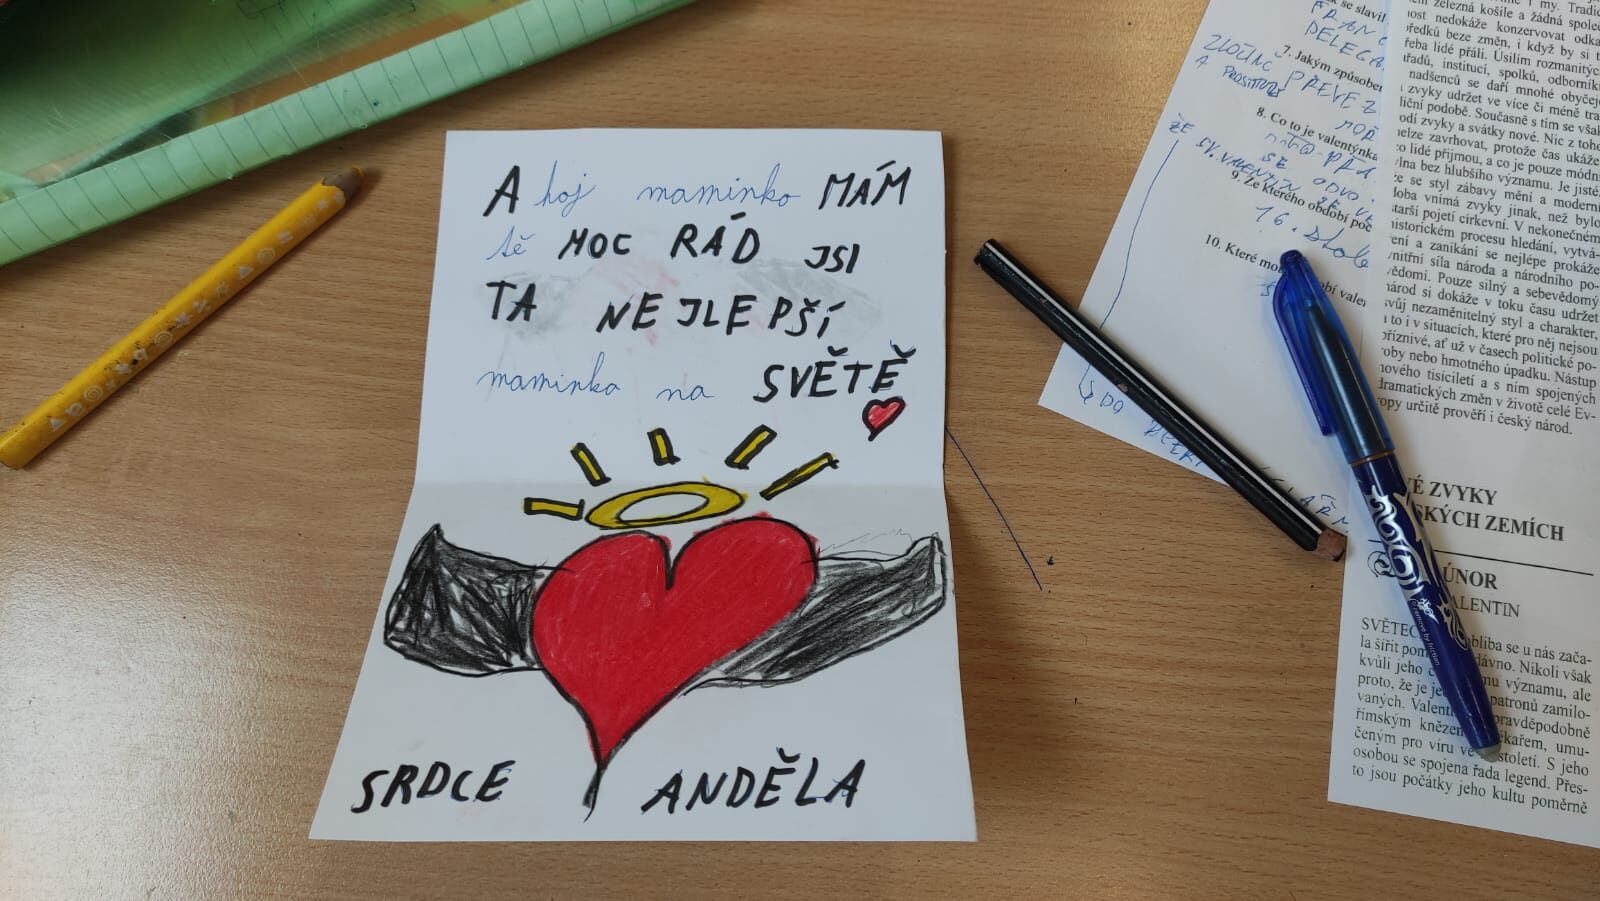 Ahoj maminko MÁM
tě MOC RÁD JSI
TA NEJLEPŠÍ
maminka na SVĚTĚ
SRDCE ANDĚLA
se slavil
FRANC
DELEGA
7. Jakým způsobem
PŘEVEZ
8. Co to je valentýnka
SE
SV. VALENTIN
9. Ze kterého období poc
16. stole
10. Které mo
obí valen
DO
železná košile a žádná společ
nost nedokáže konzervovat odka
předků beze změn, i když by si t
řeba lidé přáli. Úsilím rozmanitých
úřadů, institucí, spolků, odborníků
nadšenců se daří mnohé obyčeje
zvyky udržet ve více či méně tra
diční podobě. Současně s tím se však
rodí zvyky a svátky nové. Nic z toho
nelze zavrhovat, protože čas ukáže,
co lidé přijmou, a co je pouze módní
vlna bez hlubšího významu. Je jisté,
že se styl zábavy mění a moderní
doba vnímá zvyky jinak, než bylo
starší pojetí církevní. V nekonečném
historickém procesu hledání, vytvá-
ření a zanikání se nejlépe prokáže
vnitřní síla národa a národního po-
vědomí. Pouze silný a sebevědomý
národ si dokáže v toku času udržet
svůj nezaměnitelný styl a charakter,
a to i v situacích, které pro něj nejsou
příznivé, ať už v časech politické po-
roby nebo hmotného úpadku. Nástup
nového tisíciletí a s ním spojených
dramatických změn v životě celé Ev-
ropy určitě prověří i český národ.
VÉ ZVYKY
SKÝCH ZEMÍCH
ÚNOR
VALENTIN
SVĚTEC obliba se u nás zača-
la šířit pom dávno. Nikoli však
kvůli jeho mu významu, ale
proto, že je je patronů zamilo-
vaných. Valenti pravděpodobně
římským knězem lékařem, umu-
čeným pro víru ve století. S jeho
osobou se spojena řada legend. Přes-
to jsou počátky jeho kultu poměrně
remove by friction